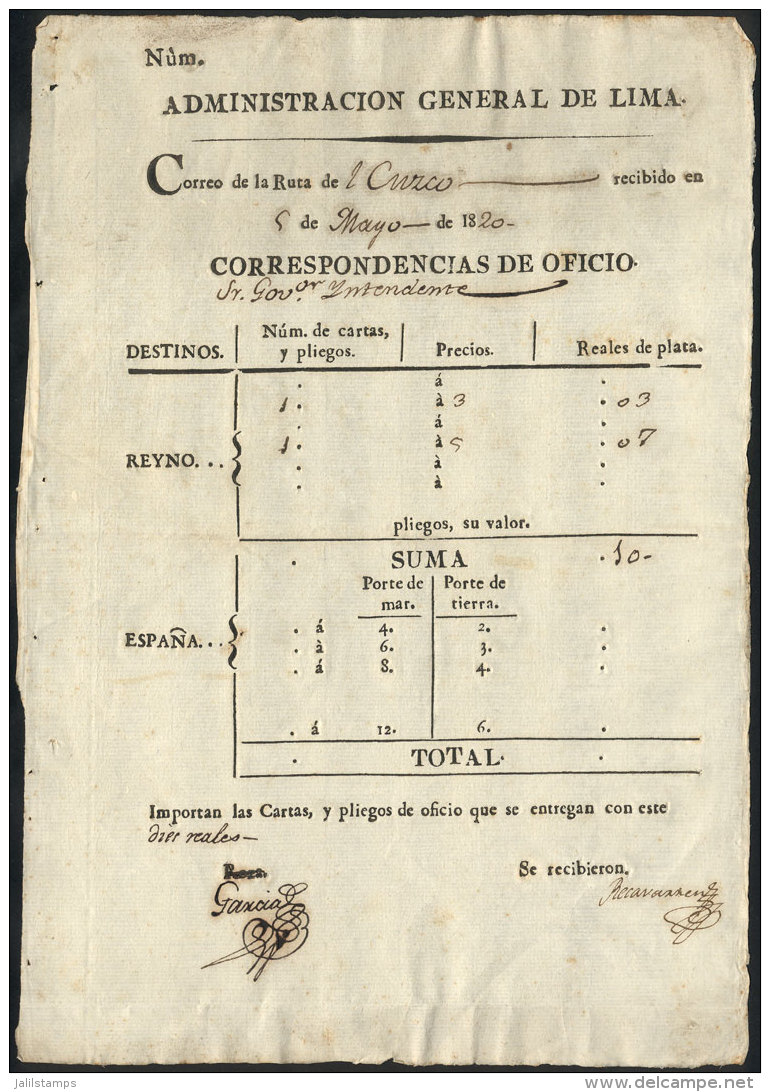 Nùm.
ADMINISTRACION GENERAL DE LIMA.
Correo de la Ruta de l Cuzco recibido en
5 de Mayo de 1820
CORRESPONDENCIAS DE OFICIO.
Sr. Govor. Yntendente
DESTINOS. Núm. de cartas, y pliegos. Precios. Reales de plata.
. á .
1. à 3 . 03
. á .
1. à 5 . 07
REYNO... . à .
. à .
pliegos, su valor.
. SUMA . 10
Porte de mar. Porte de tierra.
. á 4. 2. .
ESPAÑA... . à 6. 3. .
. á 8. 4. .
. á 12. 6. .
. TOTAL. .
Importan las Cartas, y pliegos de oficio que se entregan con este
diès reales
Se recibieron.
Garcia Recavarren
jalilstamps
delcampe.net